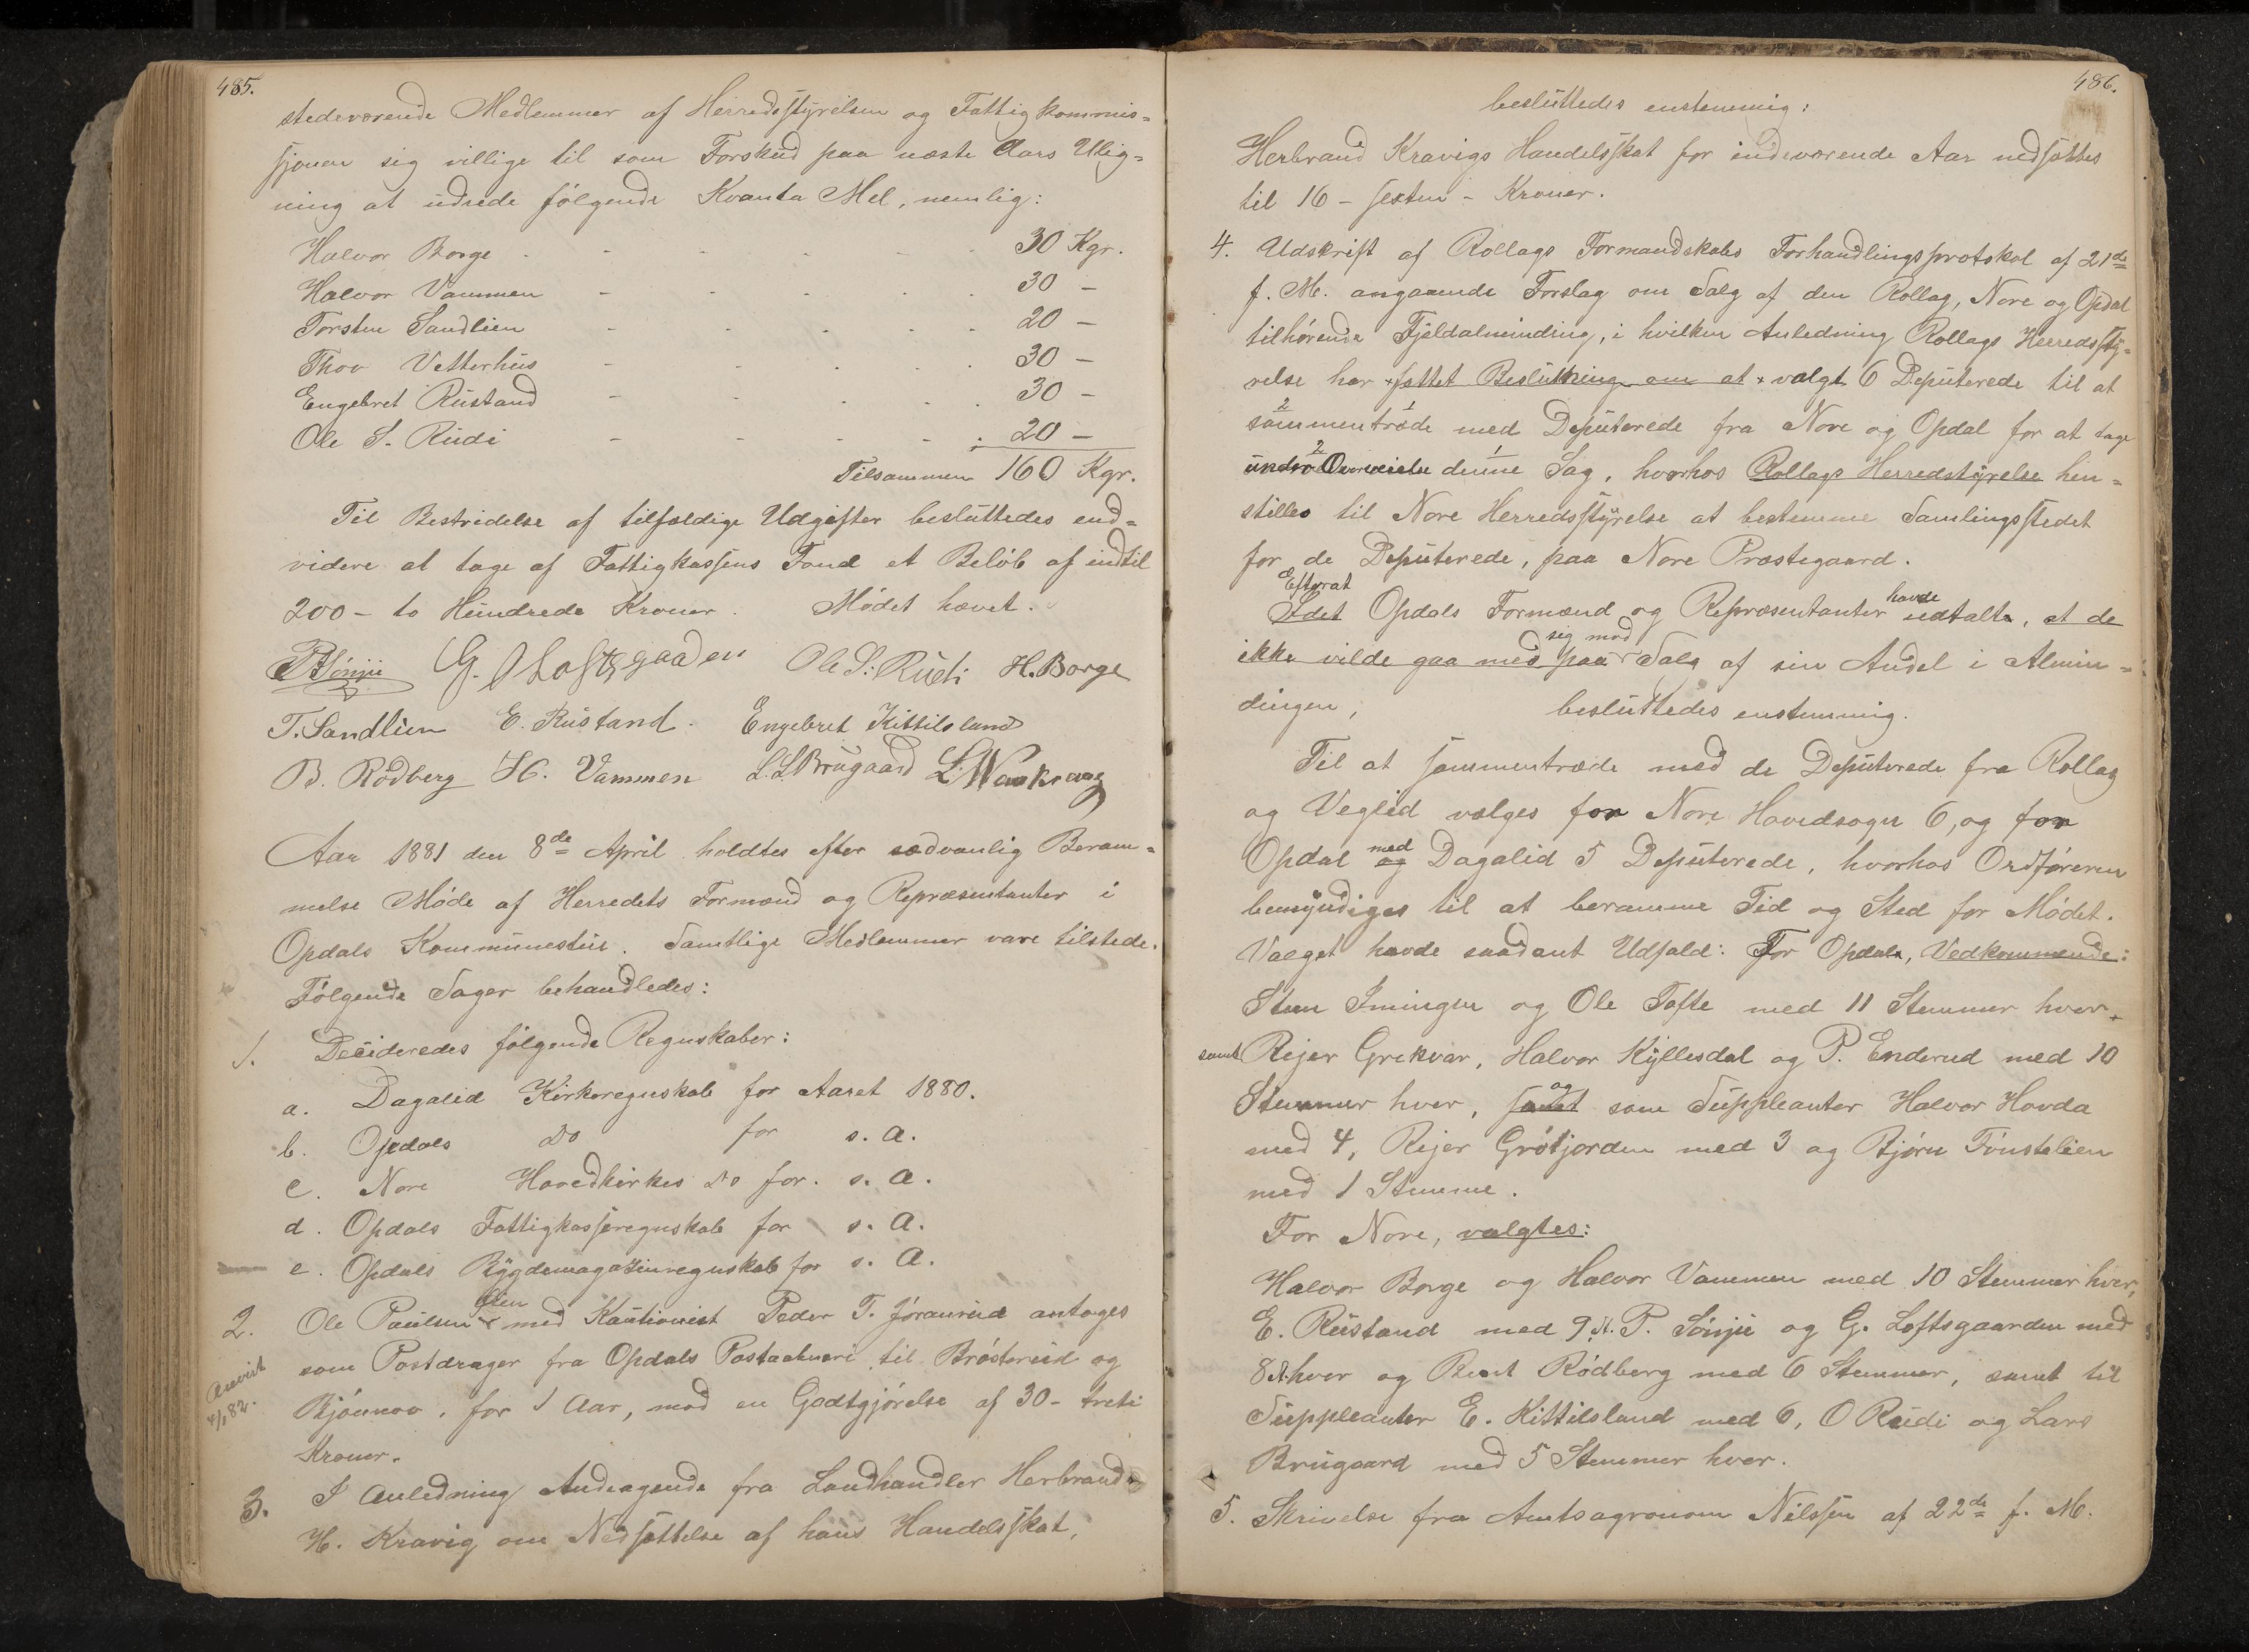 485.
stedeværende Medlemmer af Herredsstyrelsen og Fattigkommis=
sjonen sig villige til som Forskud paa næste Aars Ulig=
ning at udrede følgende Kvanta Mel, nemlig:
Halvor Borge - - - - - 30 Kgr.
Halvor Vammen - - - - - 30 -
Torsten Sandlien - - - - - 20 -
Thov Vetterhus - - - - - 30 -
Engebret Rustand - - - - - 30 -
Ole S. Rudi - - - - - 20 -
Tilsammen 160 Kgr.
Til Bestridelse af tilfældige Udgifter besluttedes end=
videre at tage af Fattigkassens Fond et Beløb af indtil
200 - to Hundrede Kroner. Mødet hævet.
P. Sønju G. Loftsgaarden Ole S. Rudi H. Borge
T. Sandlien E. Rustand. Engebret Kittilsland
B. Rødberg H. Vammen L. L. Brugaard
Aar 1881 den 8de April holdtes efter sædvanlig Beram=
melse Møde af Herredets Formænd og Repræsentanter i
Opdals Kommunestue. Samtlige Medlemmer vare tilstede.
Følgende Sager behandledes:
1. Decideredes følgende Regnskaber:
a. Dagalid Kirkeregnskab for Aaret 1880.
b. Opdals Do for s. A.
c. Nore Hovedkirkes Do for s. A.
d. Opdals Fattigkasseregnskab for s. A.
e. Opdals Bygdemagazinregnskab for s. A.
2. Ole Paulsen Lien med Kautionist Peder T. Jøranrud antoges
som Postdrager fra Opdals Postaabneri til Brøsterud og
Bjønnov, for 1 Aar, mod en Godtgjørelse af 30 - treti
Kroner.
3. I Anledning Andragende fra Landhandler Herbrand
H. Kravig om Nedsættelse af hans Handelsskat,
486.
besluttedes enstemmig:
Herbrand Kravigs Handelsskat for indeværende Aar nedsættes
til 16 - sexten - Kroner.
4. Udskrift af Rollags Formandskabs Forhandlingsprotokol af 21de
f. M. angaaende Forslag om Salg af den Rollag, Nore og Opdal
tilhørende Fjeldalminding, i hvilken Anledning Rollags Herredssty=
relse har fattet Beslutning om at valgt 6 Deputerede til at
sammentræde med Deputerede fra Nore og Opdal for at tage
under Overveielse denne Sag, hvorhos Rollags Herredstyrelse hen=
stilles til Nore Herredsstyrelse at bestemme Samlingsstedet
for de Deputerede, paa Nore Præstegaard.
Efterat
Idet Opdals Formænd og Repræsentanter havde udtalte, at de
ikke vilde gaa med paa sig mod Salg af sin Andel i Almin=
dingen, besluttedes enstemmig.
Til at sammentræde med de Deputerede fra Rollag
og Veglid vælges for Nore Hovedsogn 6, og for
Opdal med og Dagalid 5 Deputerede, hvorhos Ordføreren
bemyndiges til at beramme Tid og Sted for Mødet.
Valget havde saadant Udfald: For Opdal, Vedkommende:
Steen Imingen og Ole Tofte med 11 Stemmer hver,
samt Rejer Grekvar, Halvor Kyllesdal og P. Enderud med 10
Stemmer hver, samt og som Suppleanter Halvor Hovda
med 4, Rejer Grøtjorden med 3 og Bjørn Tønstelien
med 1 Stemme.
For Nore, valgtes:
Halvor Borge og Halvor Vammen med 10 Stemmer hver,
E. Rustand med 9 St. P. Sønju og G. Loftsgaarden med
8 St. hver og Bent Rødberg med 6 Stemmer, samt til
Suppleanter E. Kittilsland med 6, O Rudi og Lars
Brugaard med 5 Stemmer hver.
5. Skrivelse fra Amtsagronom Nilssen af 22de f. M.